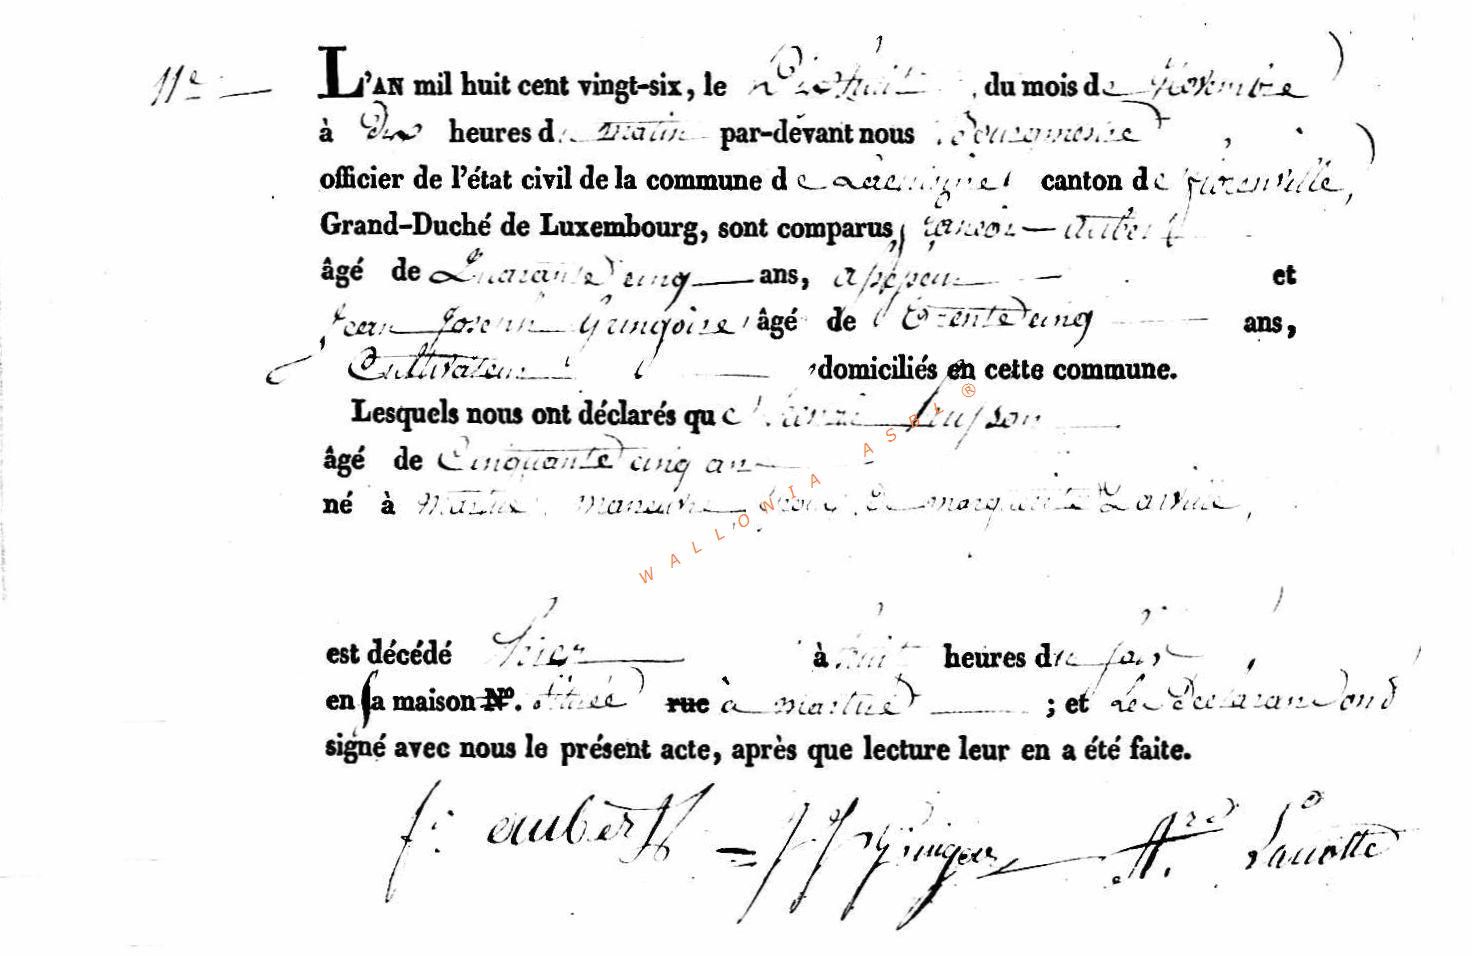 11e
L'AN mil huit cent vingt-six, le Dixhuit du mois de Novembre
à Dix heures du matin par-dévant nous Bourgmestre
officier de l'état civil de la commune de canton de florenville,
Grand-Duché de Luxembourg, sont comparus françois aubert
âgé de Quarante cinq ans, et
Jean Joseph Gringoire âgé de Trente cinq ans,
Cultivateur domiciliés en cette commune.
Lesquels nous ont déclarés que henri
âgé de Cinquante cinq an
né à Martué manœuvre Epoux de marguerite
est décédé hier à huit heures du soir
en sa maison No. située rue à martué ; et Le Declarans ond
signé avec nous le présent acte, après que lecture leur en a été faite.
f. aubert J J Gringoir Ard Lanotte
WALLONIA ASBL ®